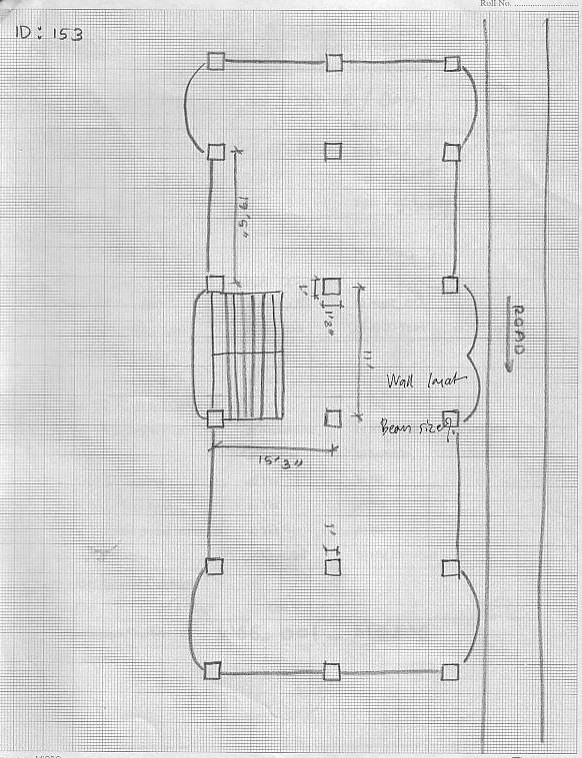 Roll No. ........................
ID: 153
13'5"
1'
1'2"
11'
ROAD
Wall
Beam size?
15'3"
1'